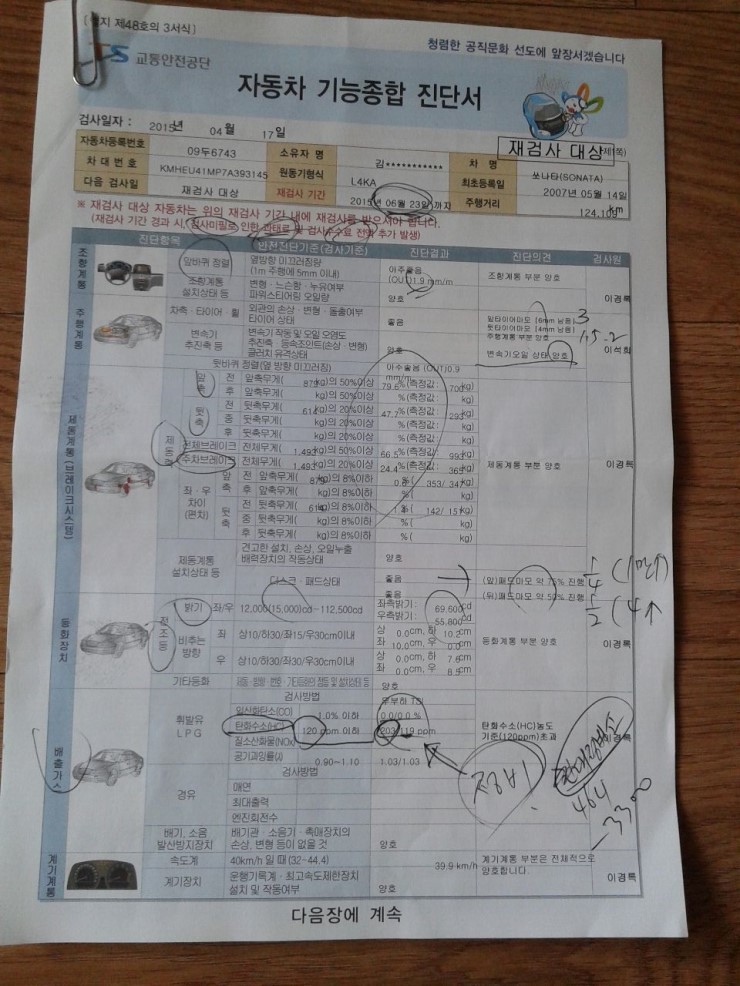 제48호의 3서식]
청렴한 공직문화 선도에 앞장서겠습니다
TS 교통안전공단
자동차 기능종합 진단서
검사일자 : 2015년 04월 17일
재검사 대상
자동차등록번호 09두6743 소유자 명 김*********** 차 명 쏘나타(SONATA)
차 대 번 호 KMHEU41MP7A393145 원동기형식 L4KA 최초등록일 2007년 05월 14일
다음 검사일 재검사 대상 재검사 기간 2015년 06월 23일까지 주행거리 124,102km
※ 재검사 대상 자동차는 위의 재검사 기간 내에 재검사를 받으셔야 합니다.
(재검사 기간 경과 시, 검사미필로 인한 과태료 및 검사수수료 전액 추가 발생)
진단항목 안전진단기준(검사기준) 진단결과 진단의견 검사원
조향계통
앞바퀴 정렬 옆방향 미끄러짐량 아주좋음
(1m 주행에 5mm 이내) (OUT)1.9 mm/m 조향계통 부분 양호
조향계통 변형·느슨함·누유여부
설치상태 등 파워스티어링 오일량 양호 이경록
주행계통
차축·타이어·휠 외관의 손상·변형·돌출여부 좋음 앞타이어마모 [6mm 남음] 3
타이어 상태 뒷타이어마모 [4mm 남음] 1.5-2
변속기 변속기 작동 및 오일 오염도 주행계통 부분 양호
추진축 등 추진축·등속조인트(손상·변형) 양호 변속기오일 상태 양호 이석희
클러치 유격상태
제동계통(브레이크시스템)
뒷바퀴 정렬(옆 방향 미끄러짐) 아주좋음 (OUT)0.9
제동력
앞축 전 앞축무게( 879kg)의 50%이상 79.6%(측정값: 700kg)
후 앞축무게( kg)의 50%이상 %(측정값: kg)
뒷축 전 뒷축무게( 614kg)의 20%이상 47.7%(측정값: 293kg)
중 뒷축무게( kg)의 20%이상 %(측정값: kg)
후 뒷축무게( kg)의 20%이상 %(측정값: kg)
전체브레이크 전체무게( 1,493kg)의 50%이상 66.5%(측정값: 993kg) 제동계통 부분 양호 이경록
주차브레이크 전체무게( 1,493kg)의 20%이상 24.4%(측정값: 365kg)
좌·우 차이 (편차)
앞축 전 앞축무게( 879kg)의 8%이하 353/ 347kg)
후 앞축무게( kg)의 8%이하 %( kg)
뒷축 전 뒷축무게( 614kg)의 8%이하 142/ 151kg)
중 뒷축무게( kg)의 8%이하 %( kg)
후 뒷축무게( kg)의 8%이하 %( kg)
제동계통 견고한 설치, 손상, 오일누출 양호
설치상태 등 배력장치의 작동상태
디스크·패드상태 좋음 (앞)패드마모 약 75% 진행 1/4
좋음 (뒤)패드마모 약 50% 진행 1/2
등화장치
전조등
밝기 좌/우 12,000(15,000)cd~112,500cd 좌측밝기: 69,600cd
우측밝기: 55,800cd
비추는 방향 좌 상10/하30/좌15/우30cm이내 상 0.0cm, 하 10.2cm 등화계통 부분 양호 이경록
좌 10.0cm, 우 0.0cm
우 상10/하30/좌30/우30cm이내 상 0.0cm, 하 7.6cm
좌 0.0cm, 우 8.5cm
기타등화 양호
배출가스
휘발유 LPG
검사방법 무부하 TSI
일산화탄소(CO) 1.0% 이하 0.0/0.0 %
탄화수소(HC) 120 ppm 이하 203/119 ppm 탄화수소(HC)농도 기준(120ppm)초과 이경록
질소산화물(NOx)
공기과잉률(λ) 0.90~1.10 1.03/1.03
정비!
464
-3300
경유
검사방법
매연
최대출력
엔진회전수
배기, 소음 배기관·소음기·촉매장치의 양호
발산방지장치 손상, 변형 등이 없을 것
계기계통
속도계 40km/h 일 때(32~44.4) 39.9 km/h 계기계통 부분은 전체적으로 양호합니다.
계기장치 운행기록계·최고속도제한장치 양호 이경록
설치 및 작동여부
다음장에 계속